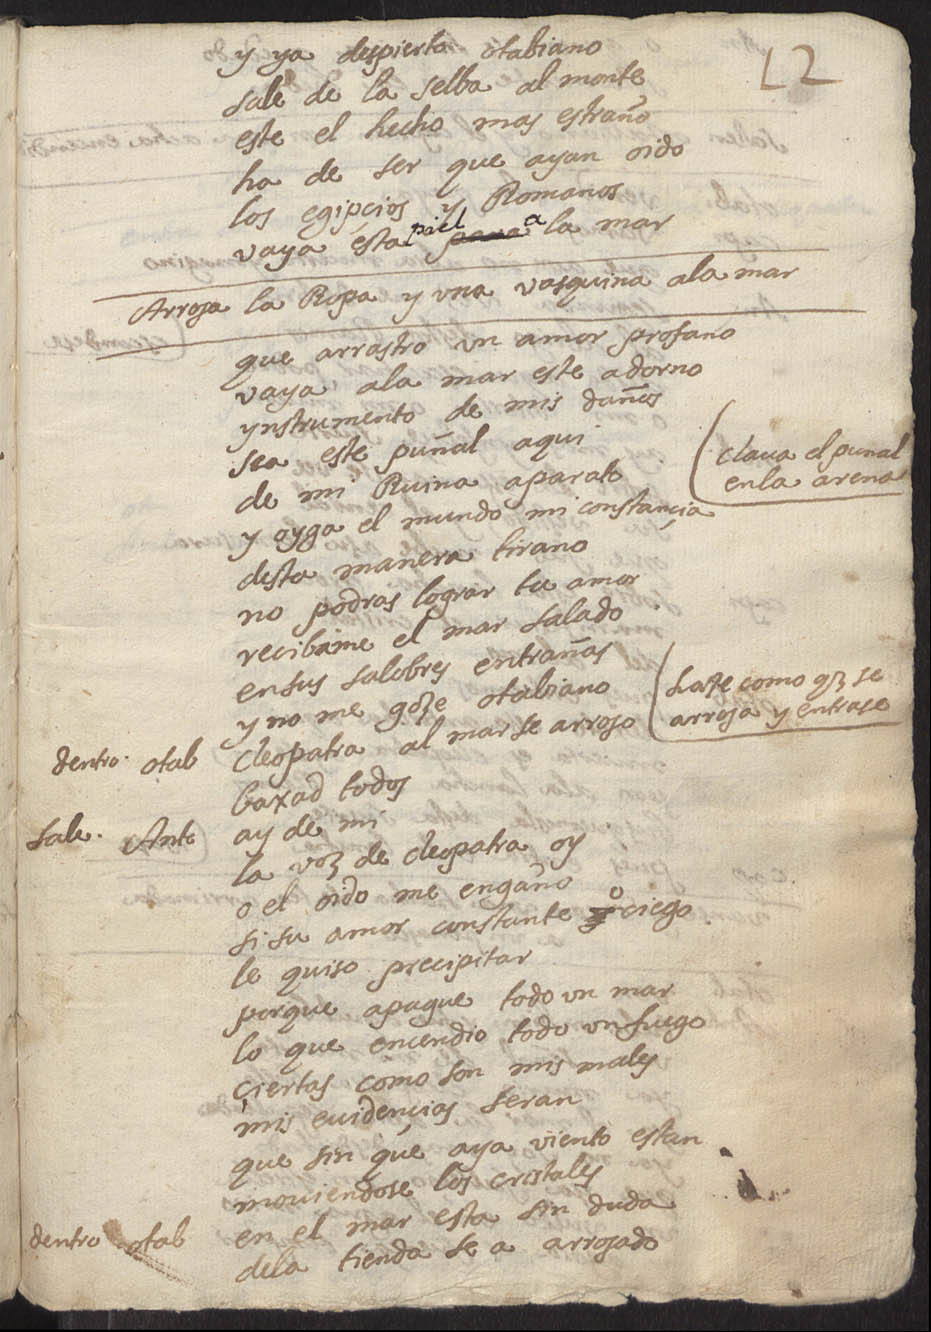 12
y ya despierto otabiano
sale de la selba al monte
este el hecho mas estraño
ha de ser que ayan oido
los egipcios y Romanos
vaya esta piel a la mar
Arroja la Ropa y vna vasquina ala mar
que arrastro vn amor profano
vaya ala mar este adorno
ynstrumento de mis daños
sea este puñal aqui
clava el punal
en la arena
de mi Ruina aparato
y oyga el mundo mi constancia
desta manera tirano
no podras lograr tu amor
recibame el mar salado
en sus salobres entrañas
y no me goze otabiano
haze como q se
arroja y entrase
dentro. otab cleopatra al mar se arrojo
baxad todos
sale. Anto ay de mi
la voz de cleopatra oy
o el oido me engaño
si su amor constante o ciego
le quiso precipitar
porque apague todo vn mar
lo que encendio todo vn fuego
ciertas como son mis males
mis euidencias seran
que sin que aya viento estan
mouiendose los cristales
en el mar esta sin duda
dentro otab dela tienda se a arrojado